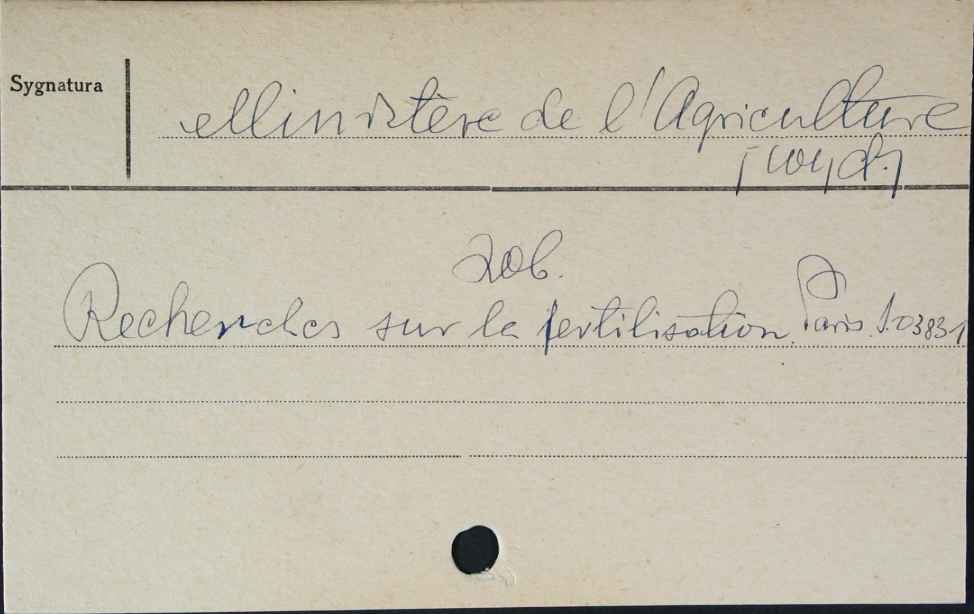 Sygnatura
Ministère de l'Agriculture
[wyd.]
Zob.
Recherches sur la fertilisation. Paris. S.03831